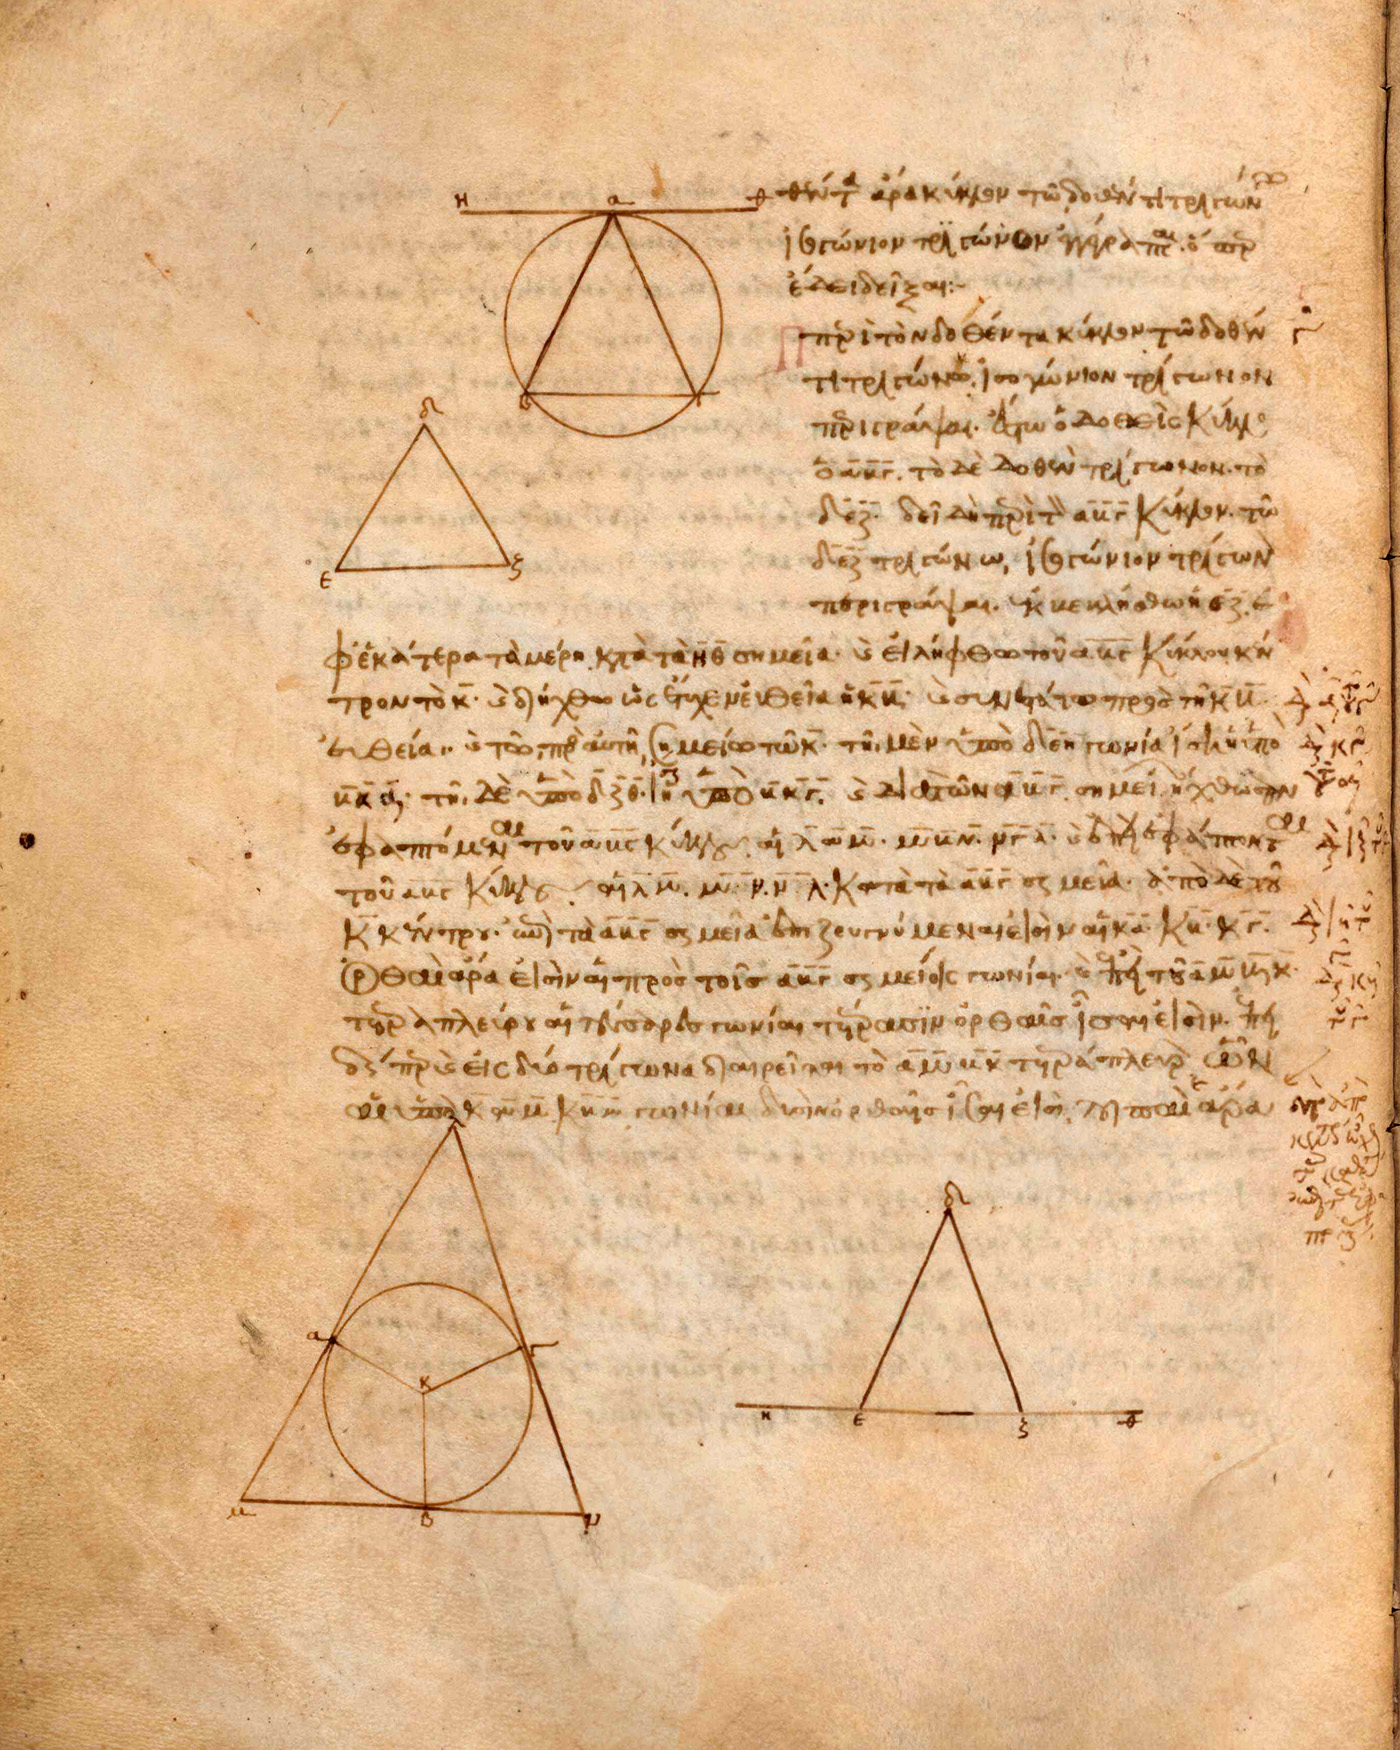 Η α Θ
θέντα ἄρα κύκλον τῶ δοθέντι τριγών
ἰσογώνιον τρίγωνον ἐγγέγραπται· ὅπερ
ἔδει δεῖξαι:~
Περὶ τὸν δοθέντα κύκλον τῶ δοθέν
τι τριγώνω, ἰσογώνιον τρίγωνον
περιγράψαι. ἔστω ὁ δοθεὶς κύκλο
ὁ αβγ. τὸ δὲ δοθὲν τρίγωνον. τὸ
δεζ. δεῖ δὴ περὶ τὸν αβγ κύκλον. τῶ
δεζ τριγώνω, ἰσογώνιον τρίγωνον
περιγράψαι. ἐκβεβλήσθω ἡ εζ. ἐ
φ' ἑκάτερα τὰ μέρη κατὰ τὰ η θ σημεῖα· καὶ εἰλήφθω τοῦ αβγ κύκλου κέν
τρον τὸ κ· καὶ διήχθω ὡς ἔτυχεν εὐθεῖα ἡ κβ· καὶ συνεστάτω πρὸς τῆ κβ
εὐθεία. καὶ τῶ πρὸς αὐτῆ σημείω τῶ κ· τῆ μὲν ὑπὸ δεη γωνία ἴση ἡ ὑπὸ
βκα· τῆ δὲ ὑπὸ δζθ· ἴση ἡ ὑπὸ βκγ. καὶ διὰ τῶν αβγ σημεί ἤχθωσαν
ἐφαπτόμεναι τοῦ αβγ κύκλου αἱ λαμ· μβν· νγλ· καὶ ἐπεὶ ἐφάπτονται
τοῦ αβγ κύκλου αἱ λμ. μν. νλ· κατὰ τὰ αβγ σημεῖα· ἀπὸ δὲ τοῦ
κ κέντρου. ἐπὶ τὰ αβγ σημεῖα ἐπιζευγνύμεναι εἰσὶν αἱ κα· κβ· κγ.
ὀρθαὶ ἄρα εἰσὶν αἱ πρὸς τοῖς αβγ σημείοις γωνίαι· καὶ ἐπεὶ τοῦ αμβκ
τετραπλεύρου αἱ τέσσαρες γωνίαι τέτρασιν ὀρθαῖς ἴσαι εἰσίν. ἐπει
δήπερ καὶ εἰς δύο τρίγωνα διαιρεῖται τὸ αμβκ τετράπλευρ ὧν
αἱ ὑπὸ καμ κβμ γωνίαι δυσὶν ὀρθαῖς ἴσαι εἰσὶ. λοιπαὶ ἄρα
β γ
δ
ε ζ
λ
α γ
κ
μ β ν
δ
η ε ζ θ